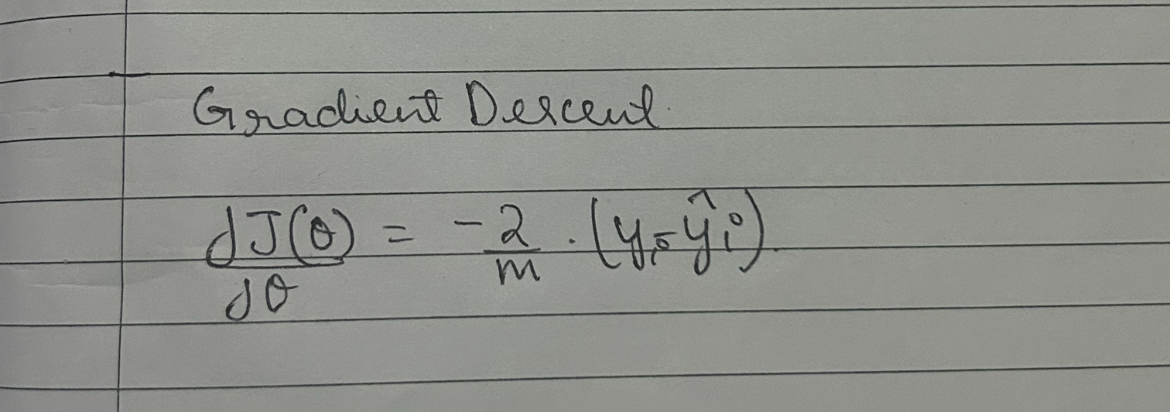 Gradient Descent.
dJ(θ)/dθ = -2/m · (yᵢ - ŷᵢ)